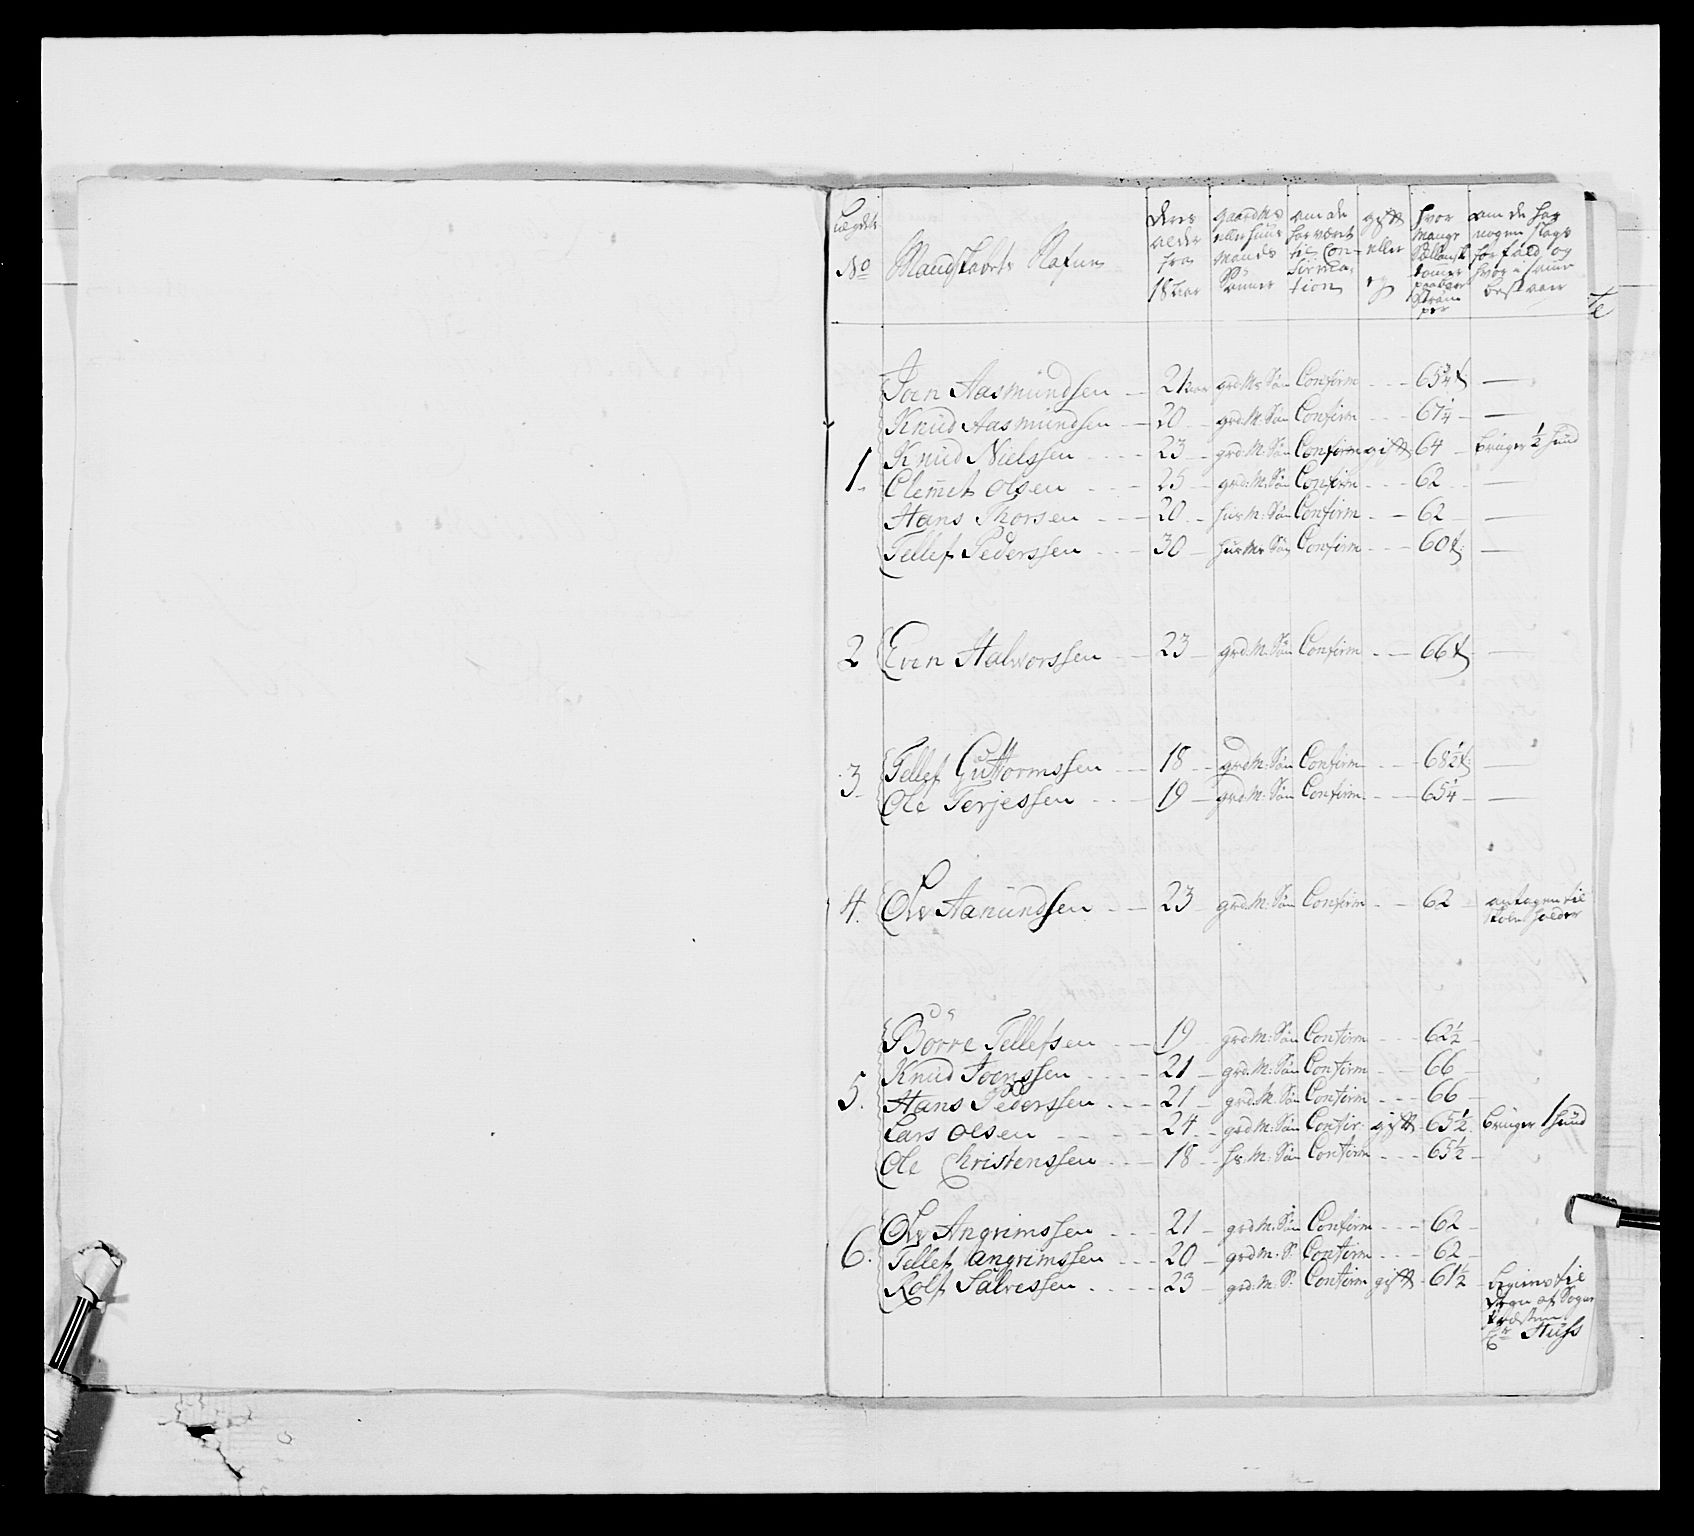 Lægdets No
Mandskabets Nafne
deres alder fra 18 aar
gaardMs eller huus Mands Sønner
om de har været til Confirmation
gift eller ey
hvor Mange Sællansk tomer paa bare Strømper
om de har nogen slags forfald og hvor i samme bestaaer
te
1. Joen Aasmundsen 21 aar grd:Ms Søn Confirm 65 3/4 t: —
Knud Aasmundsen 20 grd:M: Søn Confirm 67 1/4 —
Knud Nielssen 23 grd:M: Søn Confirm gift 64 bruger 1/2 huud
Clemet Olsen 25 grd:M: Søn Confirm 62 —
Hans Thorsen 20 hus M: Søn Confirm 62 —
Tellef Pederssen 30 huus Ms Søn Confirm 60 t: —
2 Even Halworssen 23 grd:M: Søn Confirm 66 t: —
3 Tellef Guttormssen 18 grd:M: Søn Confirm 68 1/2 t: —
Ole Terjessen 19 grd:M: Søn Confirm 65 1/4 —
4. Olv Aamundsen 23 grd:M: Søn Confirm 62 antagen til
Skoleholder
5. Børre Tellefsen 19 grd:M: Søn Confirm 62 1/2
Knud Joenssen 21 grd:M: Søn Confirm 66
Hans Pederssen 21 grd:M: Søn Confirm 66
Lars Olsen 24 grd:M: Søn Confir: gift 65 1/2 bruger 1 huud
Ole Christenssen 18 hs:M: Søn Confirm 65 1/2
6. Olv Angrimssen 21 grd:M: Søn Confirm 62
Tellef Angrimssen 20 grd:M: S: Confirm 62
Rolf Salvessen 23 grd:M: S: Confirm gift 61 1/2
til
af Sogne
Præsten
Hr Huss